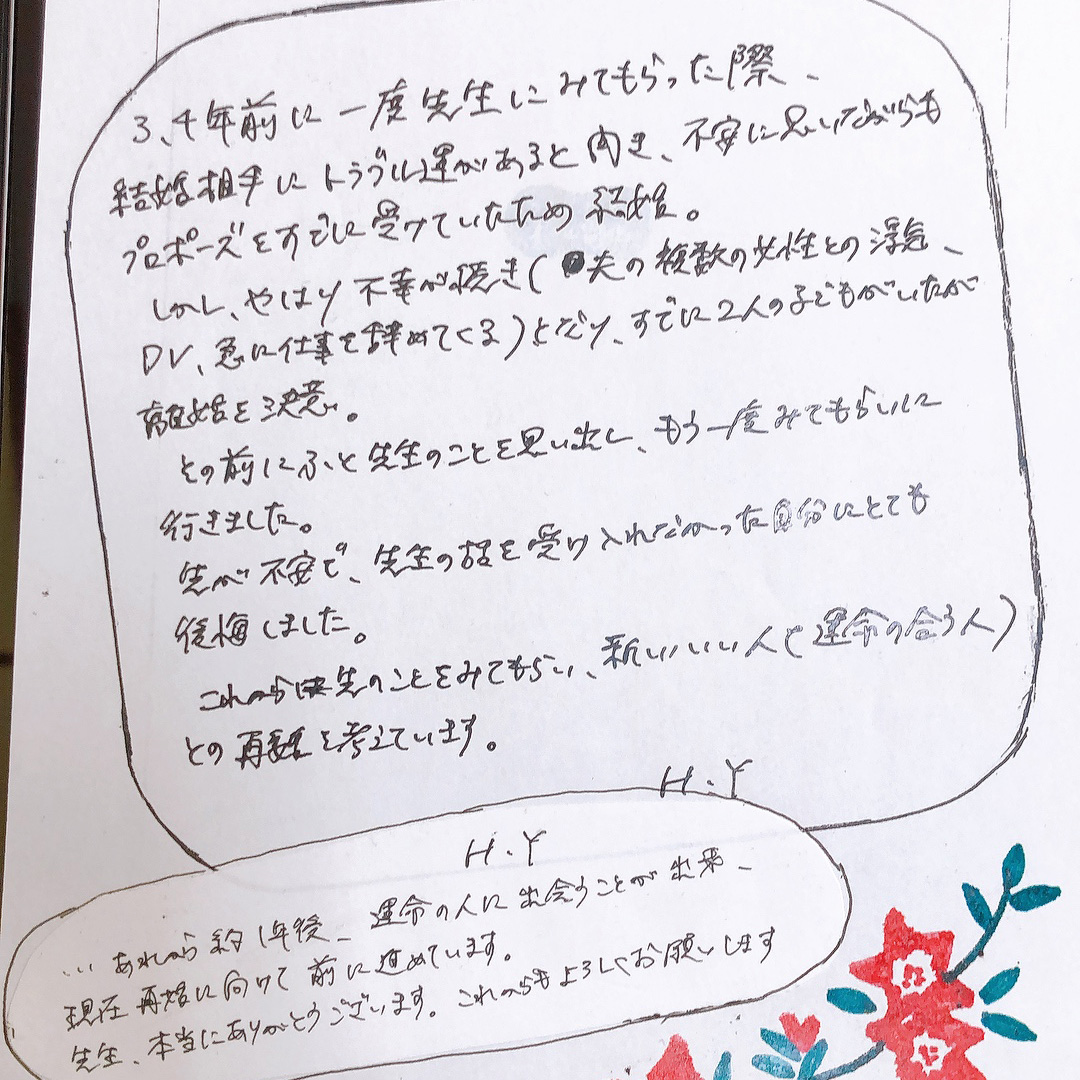 3、4年前に一度先生にみてもらった際、
結婚相手にトラブル運があると聞き、不安に思いながらも
プロポーズをすでに受けていたため結婚。
しかし、やはり不幸が続き(夫の複数の女性との浮気、
DV、急に仕事を辞めてくる)となり、すでに2人の子どもがいたが
離婚を決意。
その前にふと先生のことを思い出し、もう一度みてもらいに
行きました。
先が不安で、先生の話を受け入れなかった自分にとても
後悔しました。
これからは先のことをみてもらい、新しいいい人(運命の合う人)
との再婚を考えています。
H.Y
H.Y
... あれから約1年後、運命の人に出会うことが出来、
現在再婚に向けて前に進めています。
先生、本当にありがとうございます。これからもよろしくお願いします